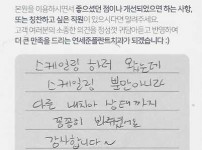 본원을 이용하시면서 좋으셨던 점이나 개선되었으면 하는 사항,
또는 칭찬하고 싶은 직원이 있으시다면 알려주세요.
고객 여러분의 소중한 의견을 정성껏 귀담아듣고 반영하여
더 큰 만족을 드리는 연세준플란트치과가 되겠습니다 :)
스케일링 하러 왔는데
스케일링 뿐만아니라
다른 내치아 상태까지
꼼꼼히 봐주셨어요
감사합니다~